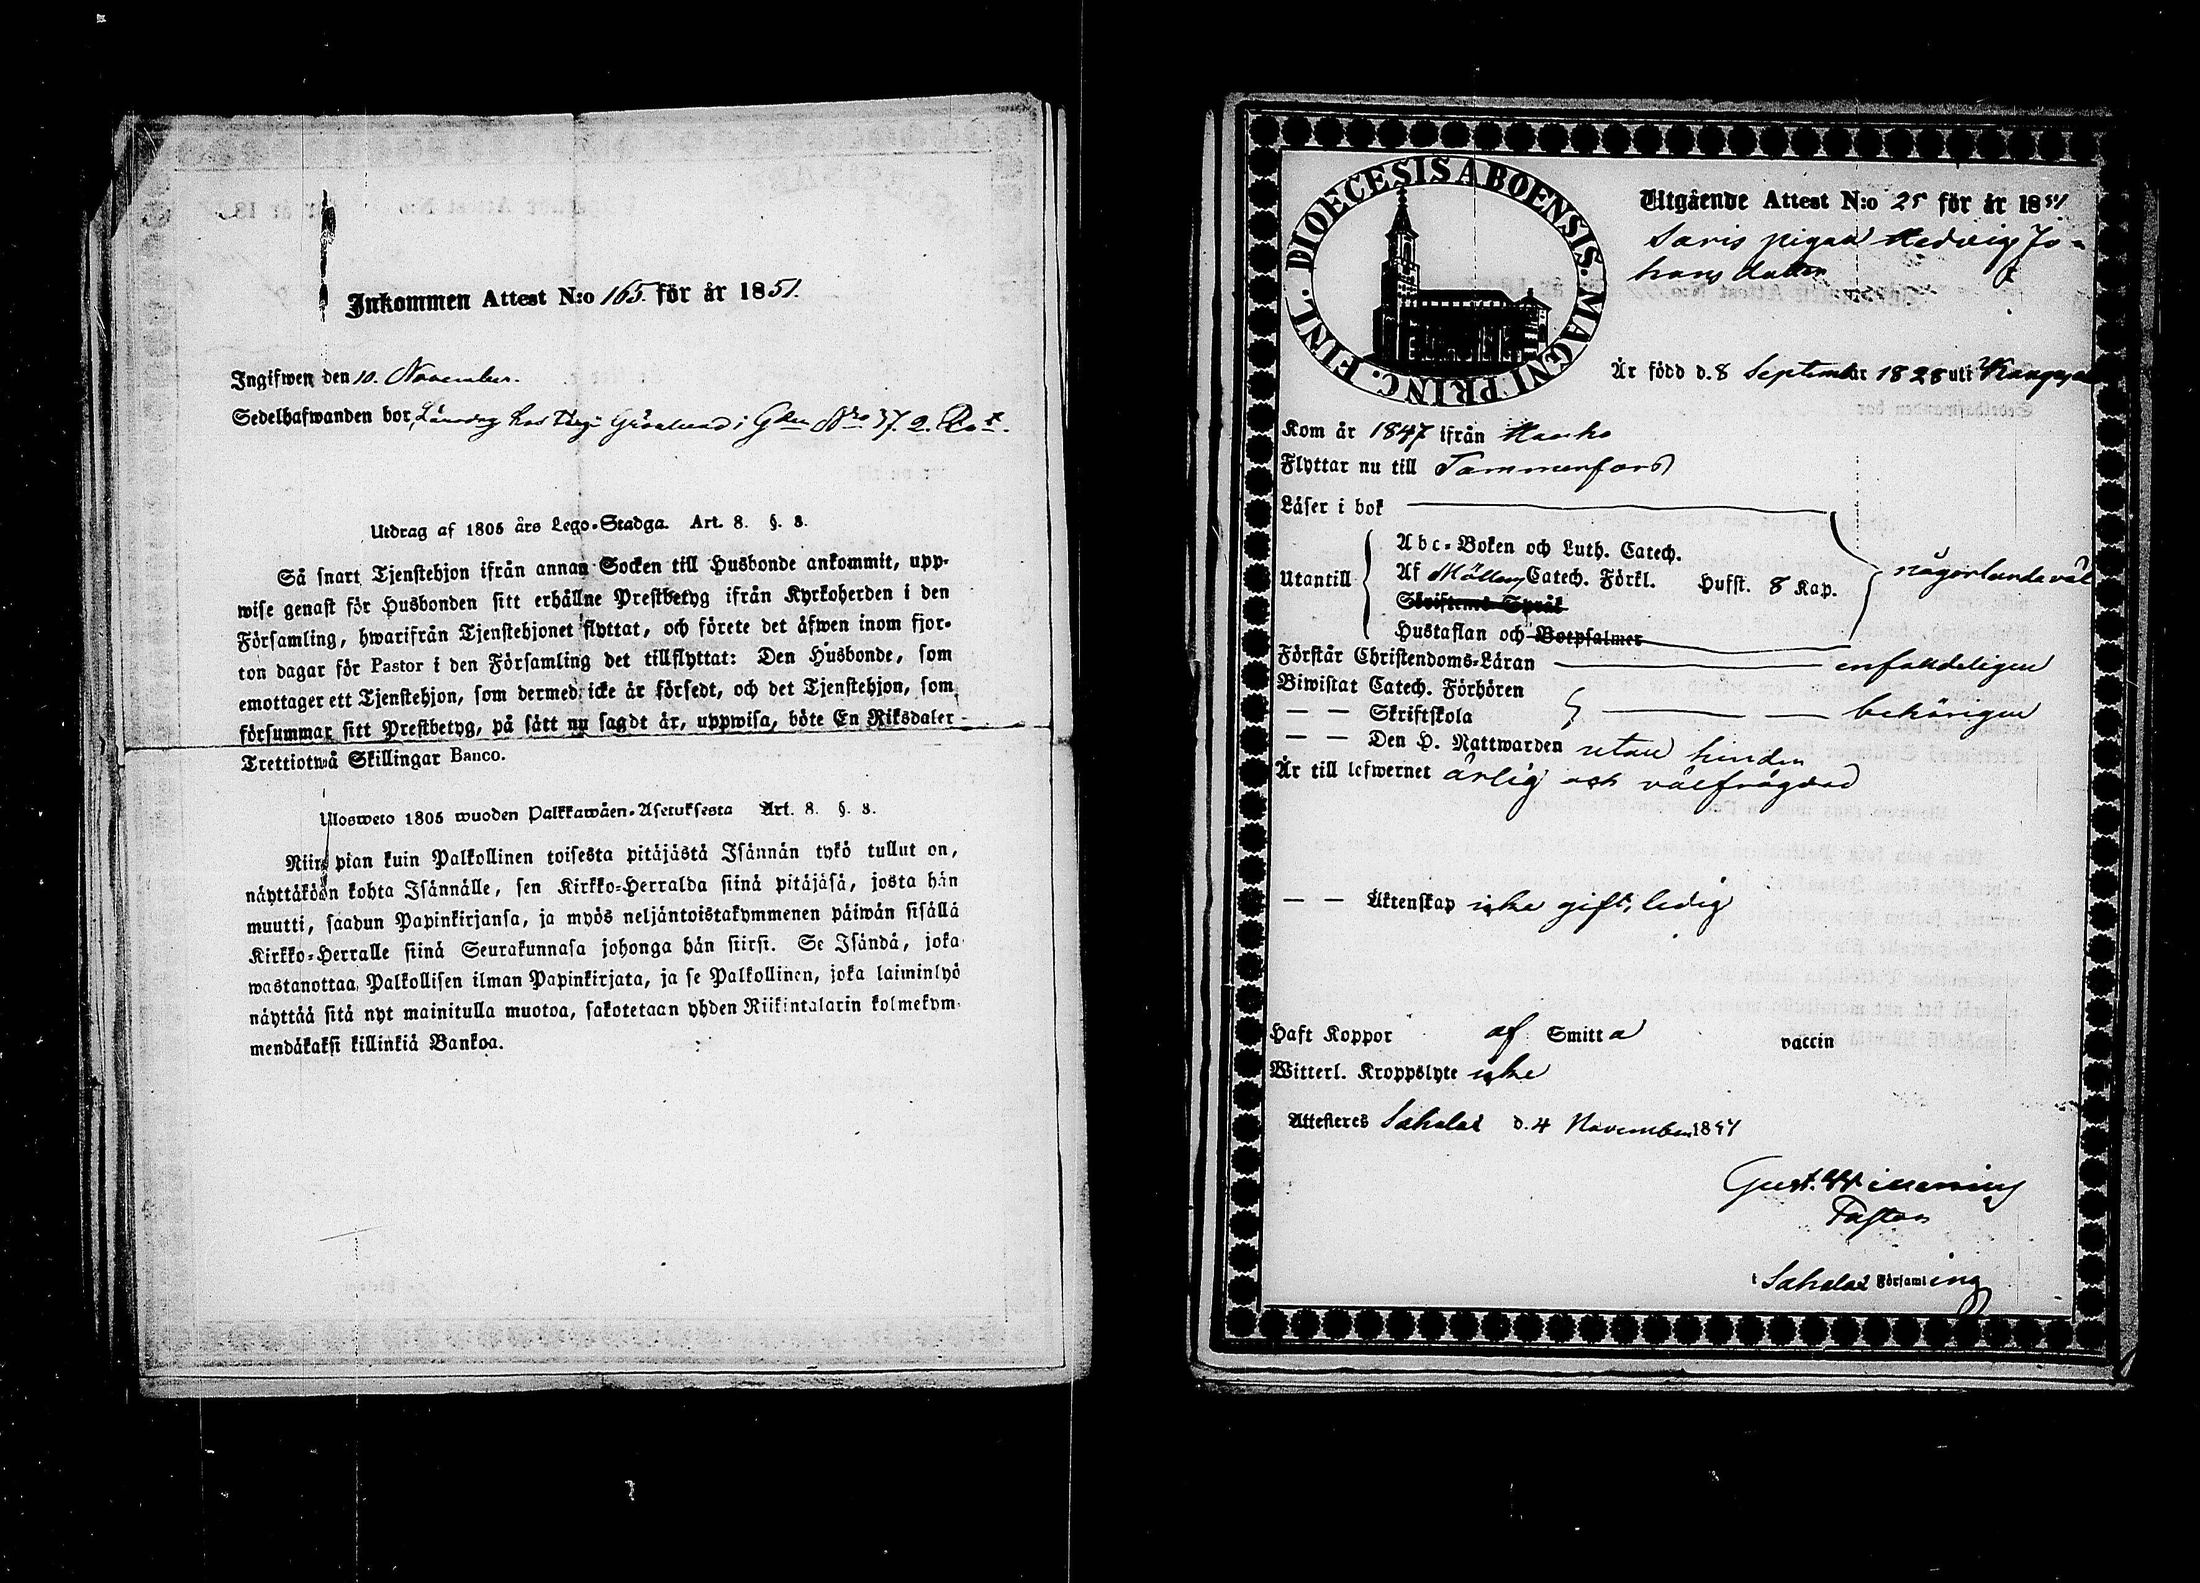 Inkommen Attest N:o 165. för år 1851.
Ingifwen den 10. November.
Sedelhafwanden bor hos Grönlund i Gden Nro 37. 2. Rot.
Utdrag af 1805 års Lego-Stadga. Art. 8. §. 8.
Så snart Tjenstehjon ifrån annan Socken till Husbonde ankommit, upp-
wise genast för Husbonden sitt erhållne Prestbetyg ifrån Kyrkoherden i den
Församling, hwarifrån Tjenstehjonet flyttat, och förete det äfwen inom fjor-
ton dagar för Pastor i den Församling det tillflyttat: Den Husbonde, som
emottager ett Tjenstehjon, som dermed icke är försedt, och det Tjenstehjon, som
försummar sitt Prestbetyg, på sätt nu sagdt är, uppwisa, böte En Riksdaler
Trettiotwå Skillingar Banco.
Ulosweto 1805 wuoden Palkkawäen-Asetuksesta Art. 8. §. 8.
Niin pian kuin Palkollinen toisesta pitäjästä Isännän tykö tullut on,
näyttäköön kohta Isännälle, sen Kirkko-Herralda siinä pitäjäsä, josta hän
muutti, saadun Papinkirjansa, ja myös neljäntoistakymmenen päiwän sisällä
Kirkko-Herralle siinä Seurakunnasa johonga hän siirsi. Se Isändä, joka
wastanottaa Palkollisen ilman Papinkirjata, ja se Palkollinen, joka laiminlyö
näyttää sitä nyt mainitulla muotoa, sakotetaan yhden Riikintalarin kolmekym-
mendäkaksi killinkiä Bankoa.
DIOECESIS ABOENSIS. MAGNI PRINC. FINL.
Utgående Attest N:o 25 för år 1851
Saris pigan Hedvig Jo-
hansdotter
Är född d. 8 September 1828 uti Kangasala
Kom år 1847 ifrån Hauho
Flyttar nu till Tammerfors
Läser i bok
Utantill
Abc-Boken och Luth. Catech.
Af Möllers Catech. Förkl. Husst. 8 Kap. någorlunda väl
Skriftenes Språk
Hustaflan och Botpsalmer
Förstår Christendoms-Läran enfaldeligen
Biwistat Catech. Förhören
— — Skriftskola behörigen
— — Den H. Nattwarden utan hinder
Är till lefwernet ärlig och välfrägdad
— — Äktenskap icke gift, ledig
Haft Koppor af Smitta vaccin
Witterl. Kroppslyte icke
Attesteres Sahalax d. 4 November 1851
Gust. Winning
Pastor
i Sahalax Församling